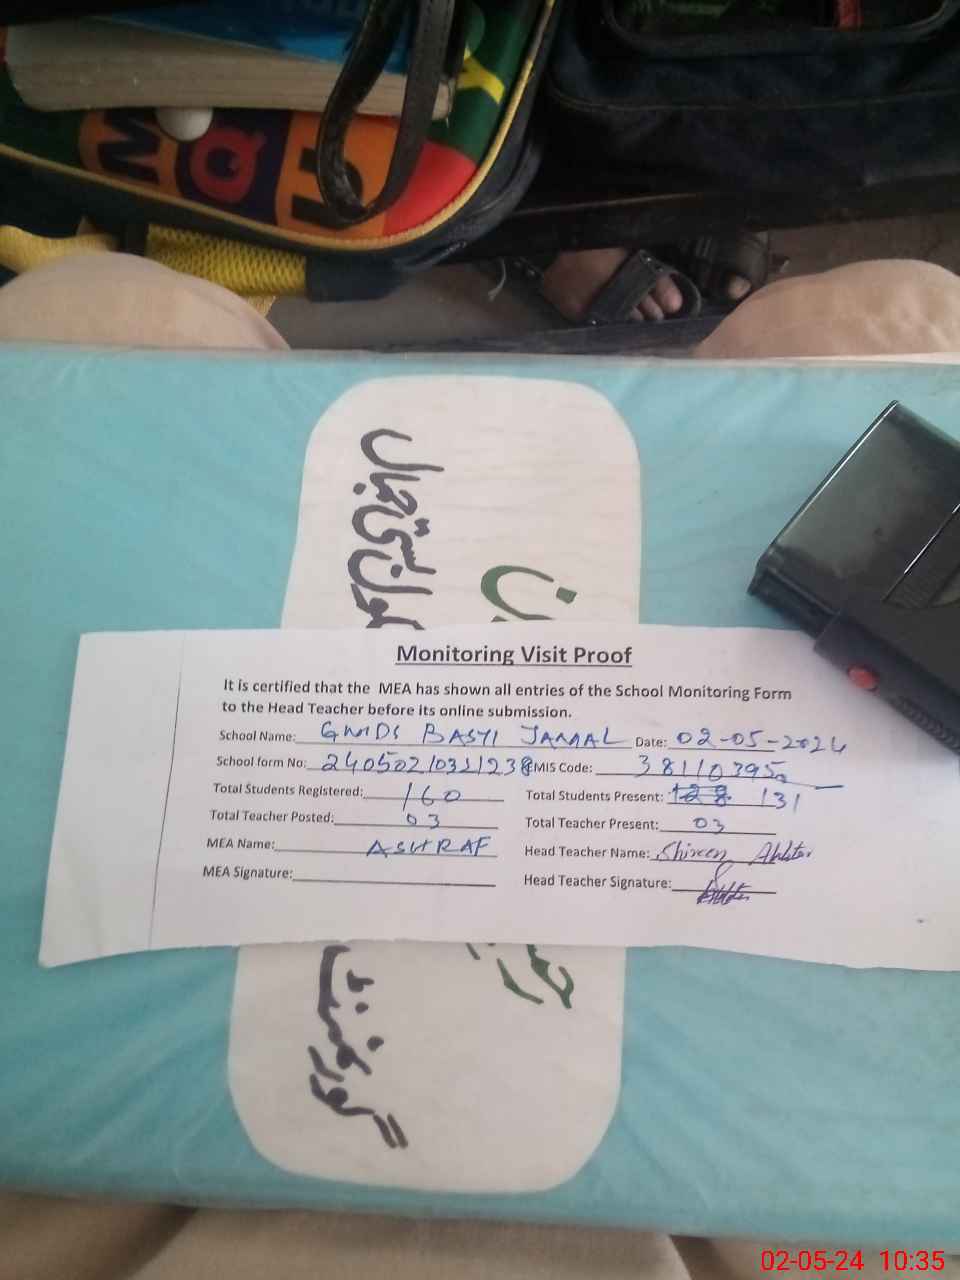 M Q U
حسن
گورنمنٹ
سکول بستی جمال
Monitoring Visit Proof
It is certified that the MEA has shown all entries of the School Monitoring Form
to the Head Teacher before its online submission.
School Name: GMDS BASTI JAMAL Date: 02-05-2024
School form No: EMIS Code: 38110395
Total Students Registered: 160 Total Students Present: 128 131
Total Teacher Posted: 03 Total Teacher Present: 03
MEA Name: ASHRAF Head Teacher Name: Shireen Akhter
MEA Signature: Head Teacher Signature:
02-05-24 10:35